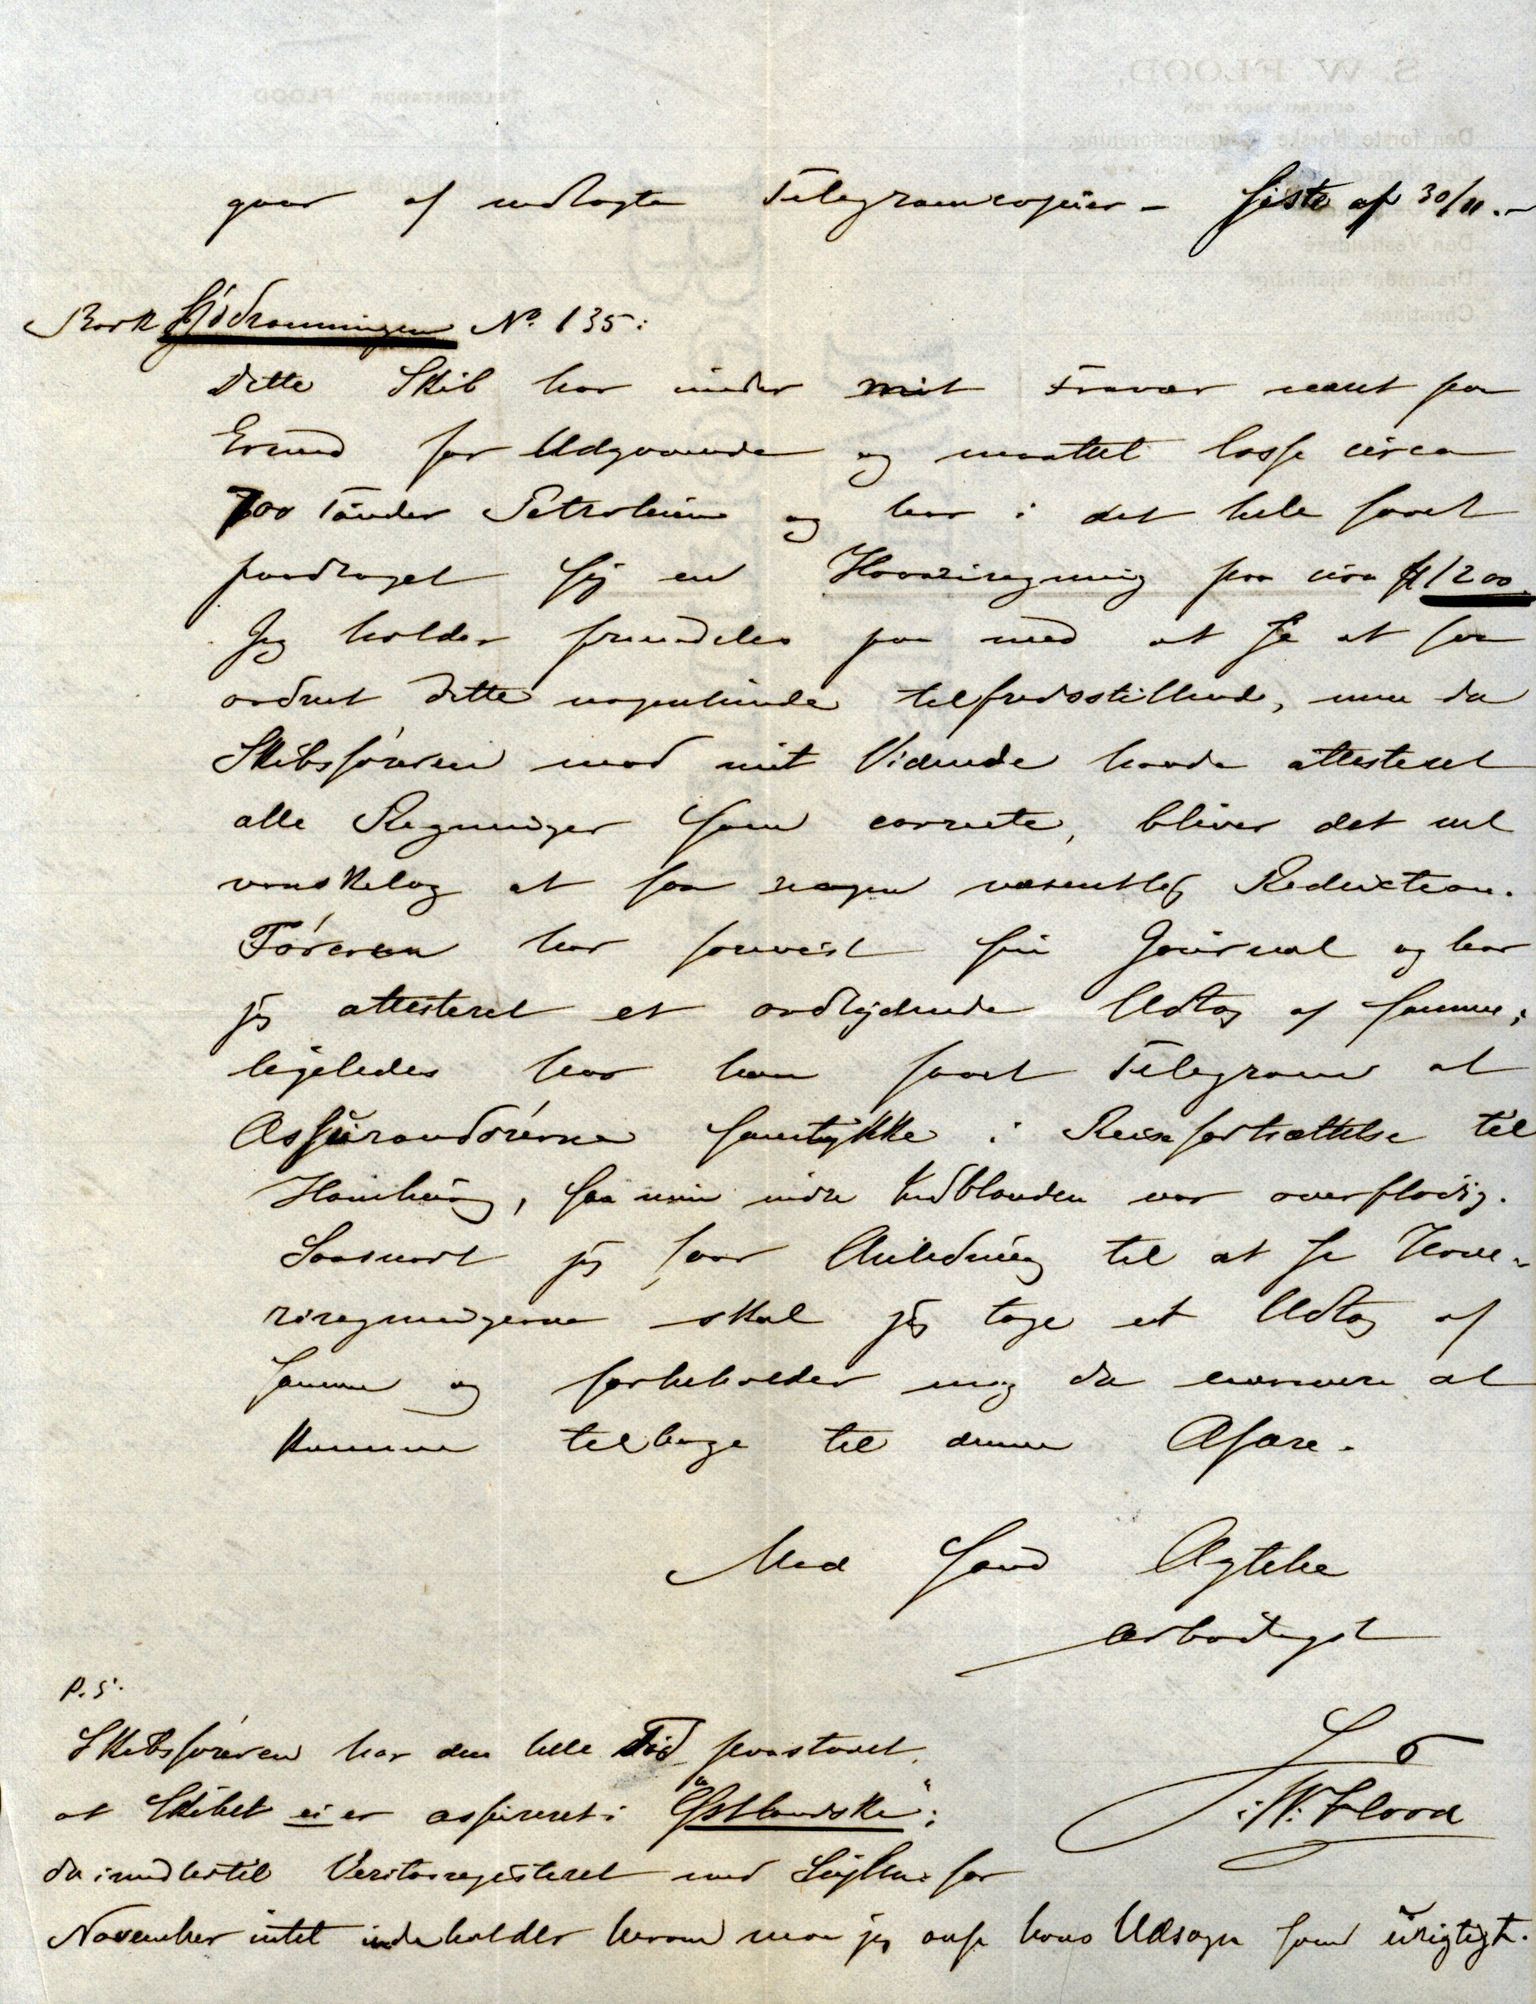 gaar af indlagte Telegramcopier – siste af 30/11. –
Bark Sjödronningen No. 135:
Dette Skib har under mit Fravær været paa
Grund for Udgaaende og maattet losse circa
700 Tønder Petroleum og har i det hele faaet
paadraget sig en Havariregning paa circa $ 1200.
Jeg holder fremdeles paa med at se at faa
ordnet dette nogenlunde tilfredsstillende, men da
Skibsføreren med mit Vidende havde attesteret
alle Regninger som correcte, bliver det vel
vanskelig at faa nogen væsentlig Reduction.
Føreren har forevist sin Journal og har
jeg attesteret et ordlydende Udtog af samme;
ligeledes har han faaet Telegram at
Assurandørerne samtykke i Reisefortsættelse til
Hamburg, saa min videre Indblanden var overflødig.
Saasnart jeg faar Anledning til at se Hava-
riregningerne skal jeg tage et Udtog af
samme og forbeholder mig da nærmere at
komme tilbage til denne Afære.
Med sand Agtelse
ærbødigst
S. W. Flood
P. S.
Skibsføreren har den hele Tid paastaaet,
at Skibet ei er assureret i "Østlandske";
da imidlertid Veritasregisteret med for
November intet indeholder herom maa jeg anse hans Udsagn som urigtigt.
S. W. FLOOD,
GENERAL AGENT FOR
Den første Norske
TELEGRAMADR. FLOOD